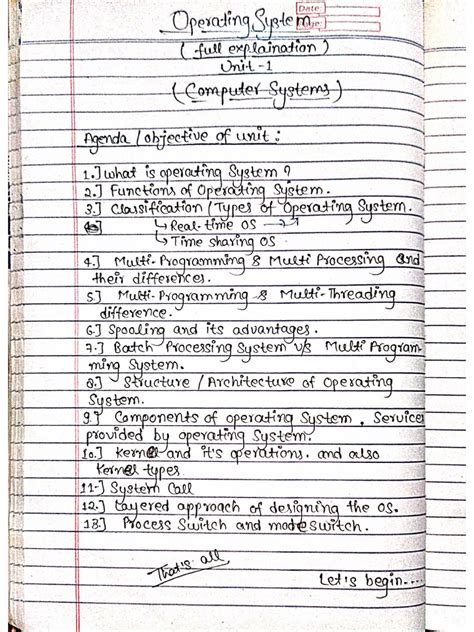 Operating System
Date:
Page:
( full explaination )
Unit-1
( Computer Systems )
Agenda / objective of unit :
1.] What is operating System ?
2.] Functions of Operating System.
3.] Classification / Types of Operating System.
↳ Real-time OS
↳ Time sharing OS
4.] Multi-Programming & Multi Processing and
their differences.
5.] Multi-Programming & Multi-Threading
difference.
6.] Spooling and its advantages.
7.] Batch Processing System v/s Multi Program-
ming System.
8.] Structure / Architecture of Operating
System.
9.] Components of operating System, Services
provided by operating System.
10.] Kernel and it's operations. and also
Kernel types
11.] System Call
12.] Layered approach of designing the OS.
13.] Process Switch and mode switch.
That's all
Let's begin....